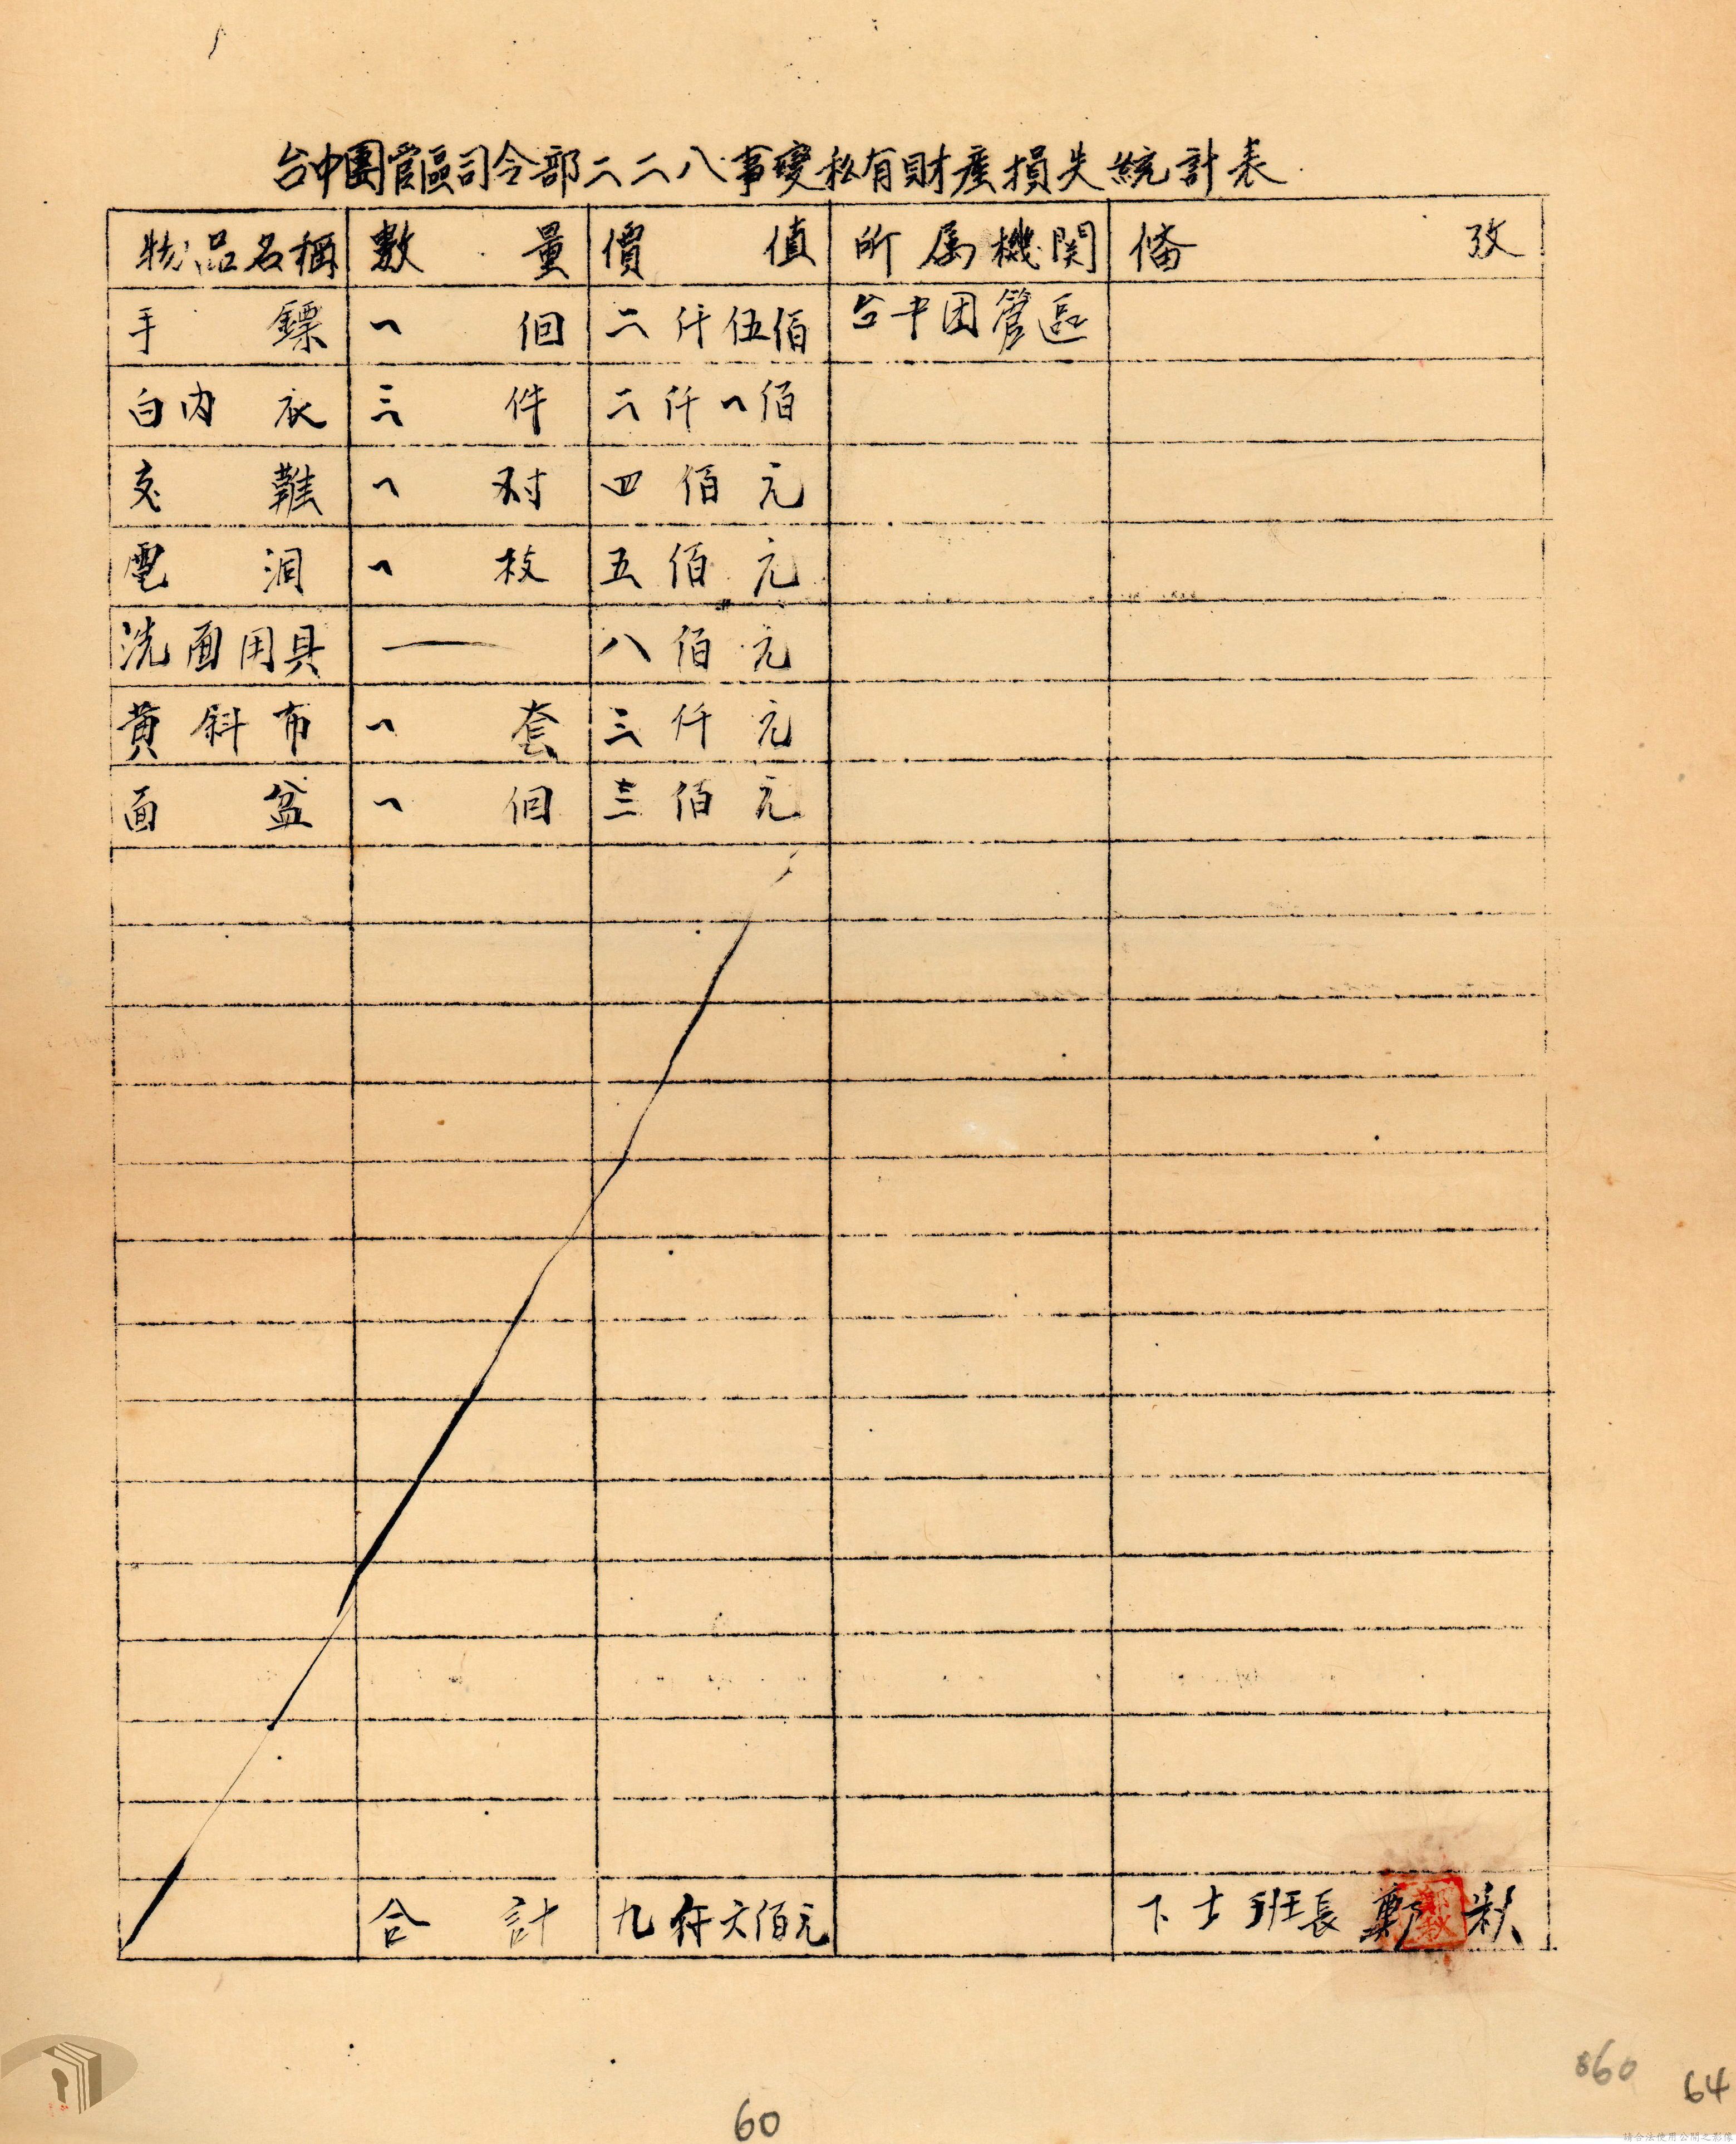 台中團管區司令部二二八事變私有財產損失統計表
物品名稱 數量 價值 所属機関 偹攷
手鏢 一個 二仟伍佰 台中团管區
白内衣 三件 二仟一佰
皮鞋 一对 四佰元
電洞 一枝 五佰元
洗面用具 — 八佰元
黄斜布 一套 三仟元
面盆 一個 三佰元
合計 九仟六佰元 下士班長 鄭秋
60
860
64
請合法使用公開之影像